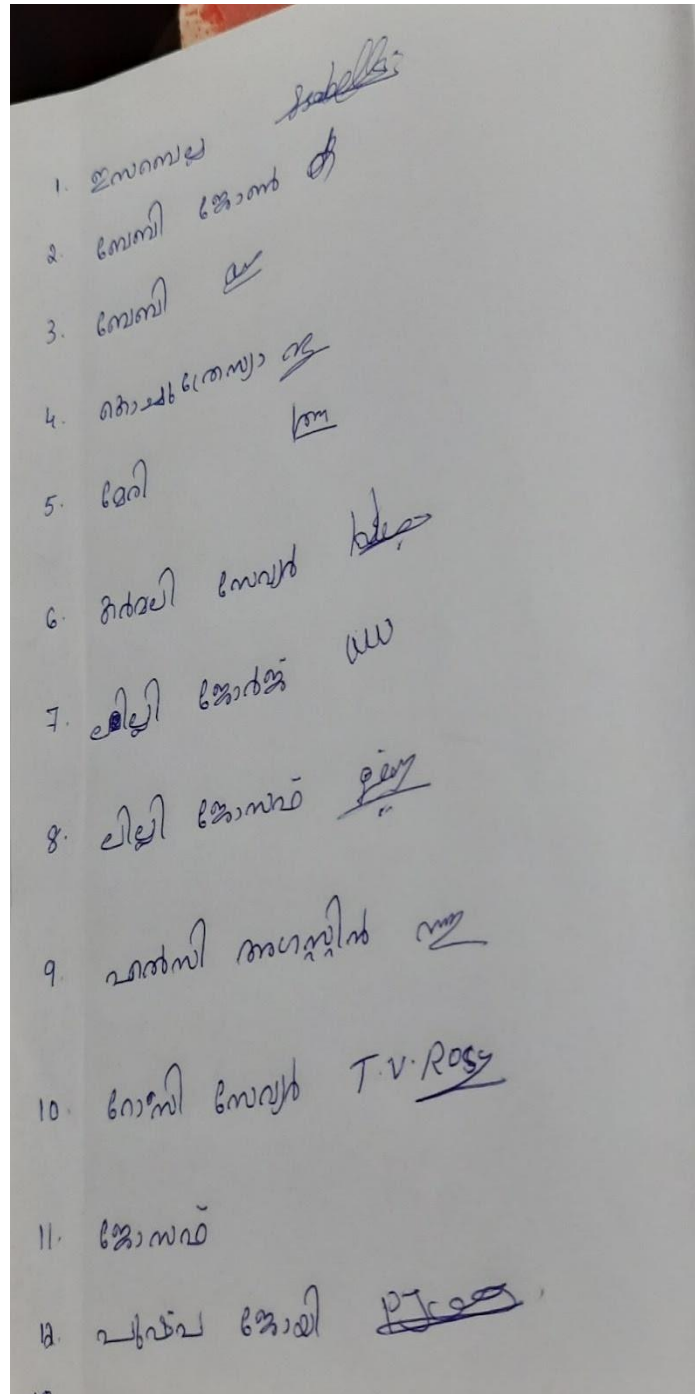 1. ഇസബെല്ല Isabella
2. ബേബി ജോൺ
3. ബേബി
4. കൊച്ചുത്രേസ്യാ
5. മേരി
6. കർമലി സേവ്യർ
7. ലില്ലി ജോർജ്
8. ലില്ലി ജോസഫ്
9. എൽസി അഗസ്റ്റിൻ
10. റോസി സേവ്യർ T.V. Rosy
11. ജോസഫ്
12. പുഷ്പ ജോയി